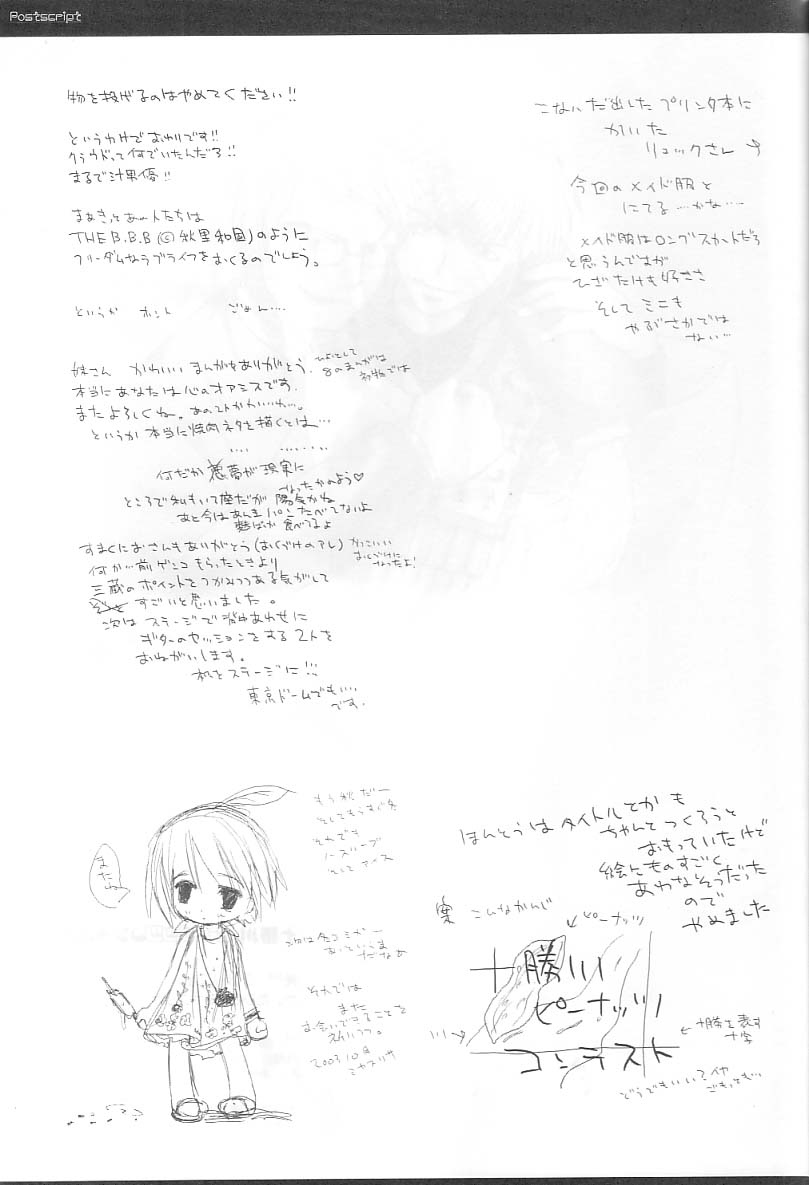 Postscript
物を投げるのはやめてください!!
というわけでおわりです!!
クラウドって何でいたんだろ!!
まるで汁果優!!
まあきっとあの人たちは
THE B.B.B (⑤秋里和国)のように
フリーダムなラブライフをおくるのでしょう。
というか ホント ごめん…
妹さん かわいいまんがをありがとう。
本当にあなたは心のオアシスです。
またよろしくね。
というか本当に焼肉ネタを描くとは…
何だか悪夢が現実に
なったかのよう♡
ところで私もいて座だが 陽気かね
あと今はあんまパンたべてないよ
麺ばっか食べてるよ
すまくにおさんもありがとう
何か…前ゲンコもらったときより
三蔵のポイントをつかみつつある気がして
すごいと思いました。
次はステージで背中あわせに
ギターのセッションをする2人を
おねがいします。
私をステージに!!!
東京ドームでも…
です。
こないだ出したプリンタ本に
かいた
リュックさん
今回のメイド服と
にてる…かな…
メイド服はロングスカートだろ
と思うんですが
ひざたけも好きさ
そしてミニも
やぶさかでは
ない…
またね
もう秋だー
そしてもうすぐ冬
それでも
ノースリーブ
そしてアイス
それでは
また
お会いできることを
2003 10月
ほんとうはタイトルとかも
ちゃんとつくろうと
おもっていたけど
絵にものすごく
あわなそうだった
ので
やめました
案 こんなかんじ
ピーナッツ
十勝川
ピーナッツ
コンテスト
川→
←十勝を表す
十字
どうでもいい?イヤ
ごもっとも…